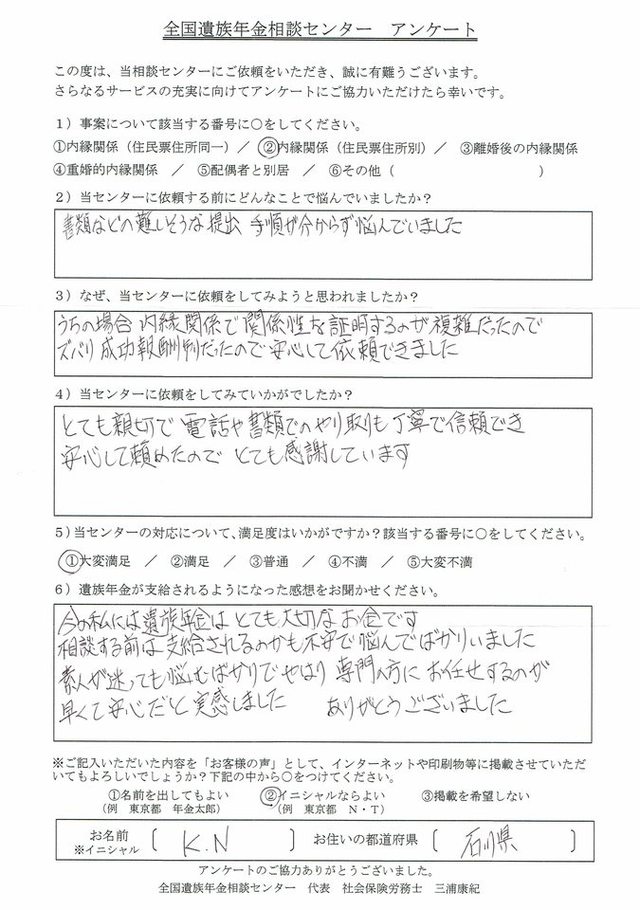 全国遺族年金相談センター　アンケート
この度は、当相談センターにご依頼をいただき、誠に有難うございます。
さらなるサービスの充実に向けてアンケートにご協力いただけたら幸いです。
1）事案について該当する番号に○をしてください。
①内縁関係（住民票住所同一）／　②内縁関係（住民票住所別）／　③離婚後の内縁関係
④重婚的内縁関係　／　⑤配偶者と別居　／　⑥その他（　　　　　　　　　　）
2）当センターに依頼する前にどんなことで悩んでいましたか？
書類などの難しそうな提出 手順が分からず悩んでいました
3）なぜ、当センターに依頼をしてみようと思われましたか？
うちの場合 内縁関係で関係性を証明するのが複雑だったので
ズバリ 成功報酬制だったので安心して依頼できました
4）当センターに依頼をしてみていかがでしたか？
とても親切で 電話や書類でのやり取りも丁寧で信頼でき
安心して頼めたので とても感謝しています
5）当センターの対応について、満足度はいかがですか？該当する番号に○をしてください。
①大変満足　／　②満足　／　③普通　／　④不満　／　⑤大変不満
6）遺族年金が支給されるようになった感想をお聞かせください。
今の私には遺族年金は とても大切な お金です
相談する前は 支給されるのかも不安で悩んでばかりいました
素人が迷っても悩むばかりで やはり 専門の方に お任せするのが
早くて安心だと 実感しました　　ありがとうございました
※ご記入いただいた内容を「お客様の声」として、インターネットや印刷物等に掲載させていただ
いてもよろしいでしょうか？下記の中から○をつけてください。
①名前を出してもよい　　②イニシャルならよい　　③掲載を希望しない
（例　東京都　年金太郎）　　（例　東京都　N・T）
お名前
※イニシャル　（　K.N　）　お住いの都道府県　（　石川県　）
アンケートのご協力ありがとうございました。
全国遺族年金相談センター　代表　社会保険労務士　三浦康紀